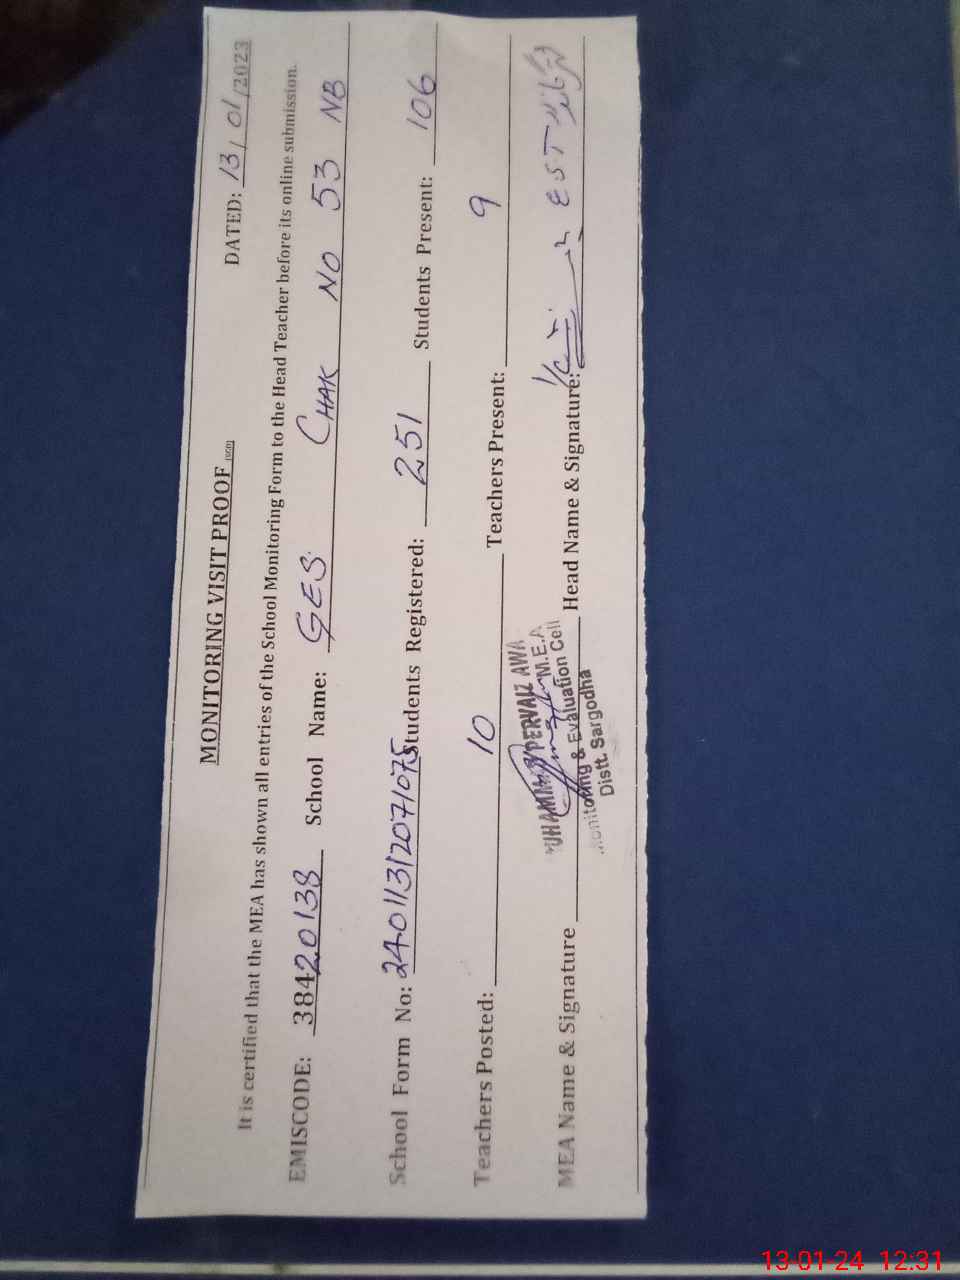 MONITORING VISIT PROOF
DATED: 13/01/2023
It is certified that the MEA has shown all entries of the School Monitoring Form to the Head Teacher before its online submission.
EMISCODE: 38420138 School Name: GES CHAK NO 53 NB
School Form No: 24011312071075 Students Registered: 251 Students Present: 106
Teachers Posted: 10 Teachers Present: 9
MEA Name & Signature Head Name & Signature: EST
PERVAIZ AWA
M.E.A
Monitoring & Evaluation Cell
Distt. Sargodha
13-01-24 12:31